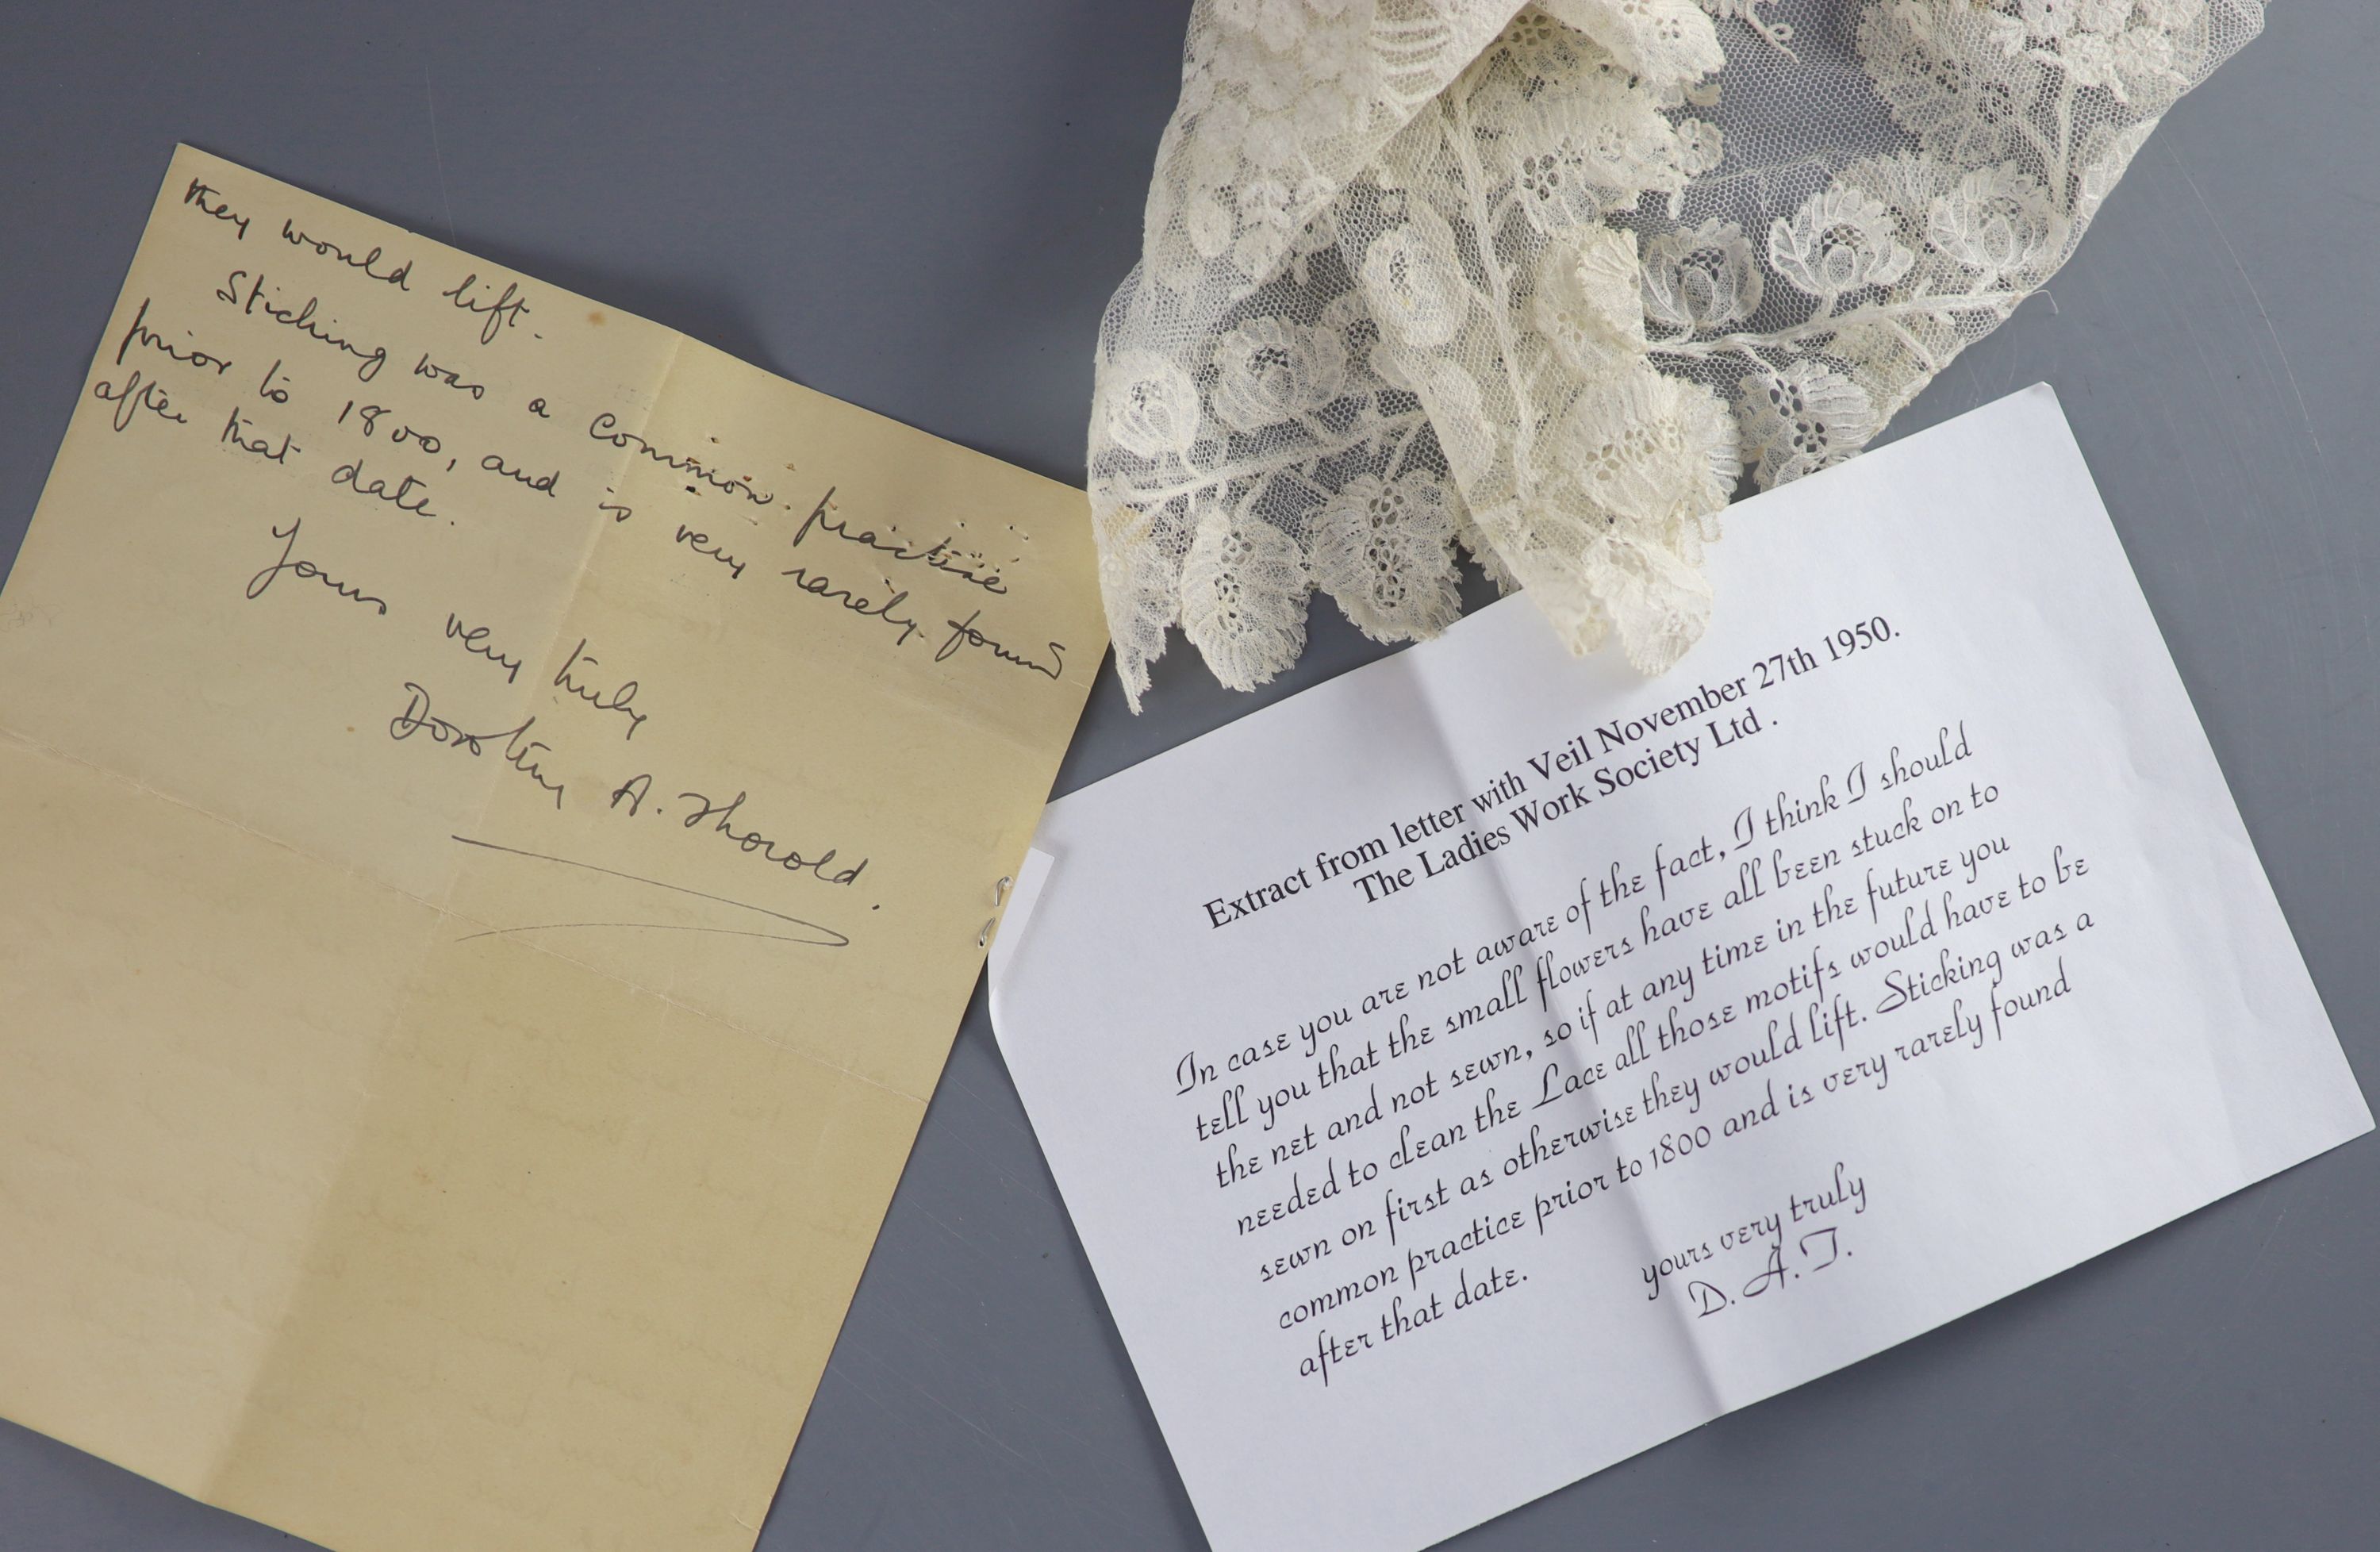 they would lift.
Sticking was a common practice
prior to 1800, and is very rarely found
after that date.
Yours very truly
Dorothy A. Thorold.
Extract from letter with Veil November 27th 1950.
The Ladies Work Society Ltd .
In case you are not aware of the fact, I think I should
tell you that the small flowers have all been stuck on to
the net and not sewn, so if at any time in the future you
needed to clean the Lace all those motifs would have to be
sewn on first as otherwise they would lift. Sticking was a
common practice prior to 1800 and is very rarely found
after that date.
yours very truly
D. A. T.